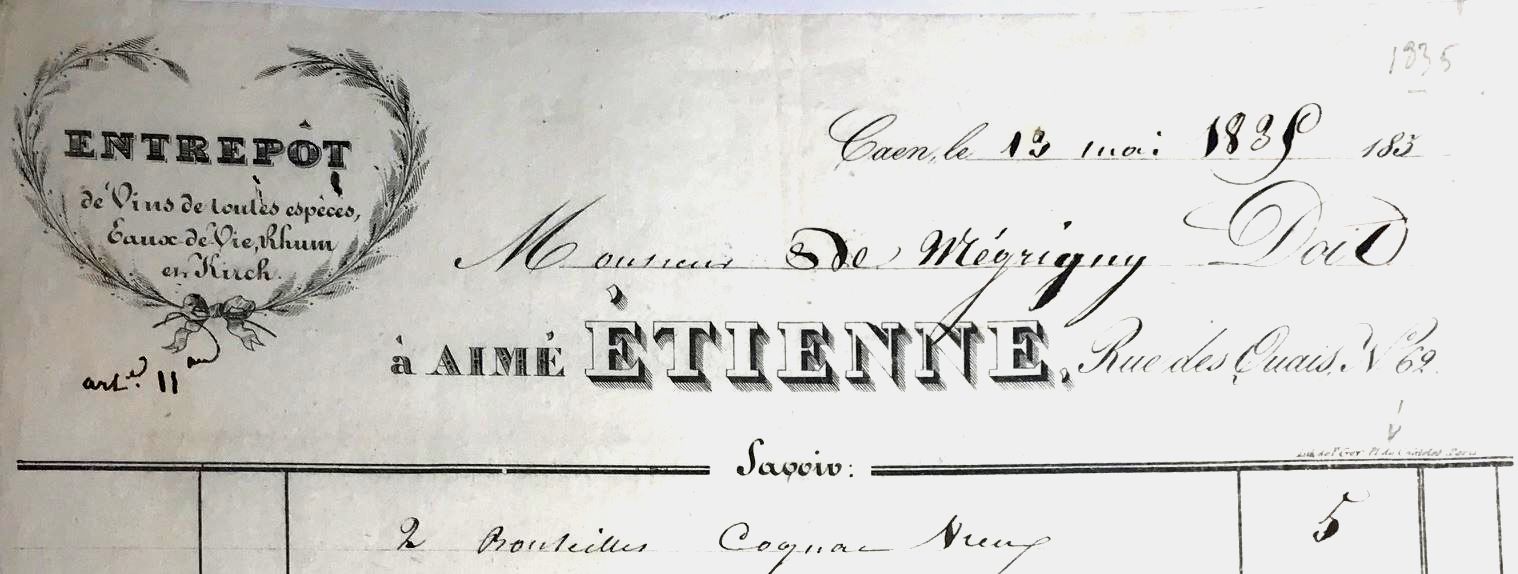 1835
ENTREPÔT
de Vins de toutes espèces,
Eaux-de-Vie, Rhum
en Kirch.
Caen, le 13 mai 1835 183
Monsieur De Mégrigny Doit
à AIMÉ ÉTIENNE, Rue des Quais, N° 62.
art. 11
Savoir:
2 Bouteilles Cognac Vieux 5